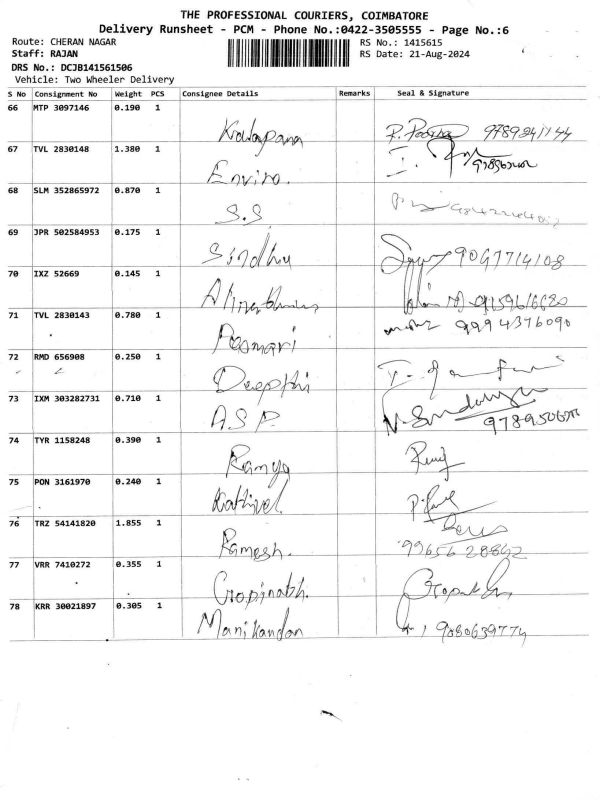 THE PROFESSIONAL COURIERS, COIMBATORE
Delivery Runsheet - PCM - Phone No.:0422-3505555 - Page No.:6
Route: CHERAN NAGAR RS No.: 1415615
Staff: RAJAN RS Date: 21-Aug-2024
DRS No.: DCJB141561506
Vehicle: Two Wheeler Delivery
S No Consignment No Weight PCS Consignee Details Remarks Seal & Signature
66 MTP 3097146 0.190 1
Kalapana
67 TVL 2830148 1.380 1
Enviro.
68 SLM 352865972 0.870 1
S.S
69 JPR 502584953 0.175 1
Sindhu 9047714108
70 IXZ 52669 0.145 1
71 TVL 2830143 0.780 1 9994376090
Poomari
72 RMD 656908 0.250 1
Deepthi
73 IXM 303282731 0.710 1
A.S.P.
74 TYR 1158248 0.390 1
Ramya
75 PON 3161970 0.240 1
Kathivel
76 TRZ 54141820 1.855 1
Ramesh.
77 VRR 7410272 0.355 1
Gopinath.
78 KRR 30021897 0.305 1
Manikandan 9080639774